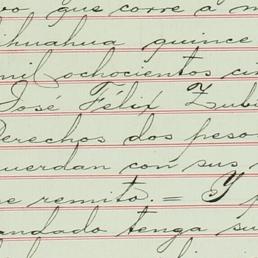 vo que corre a m
ihuahua quince
mil ochocientos ci
José Félix Zubi
Derechos dos peso
uerdan con sus
se remito. = Y p
andado tenga su